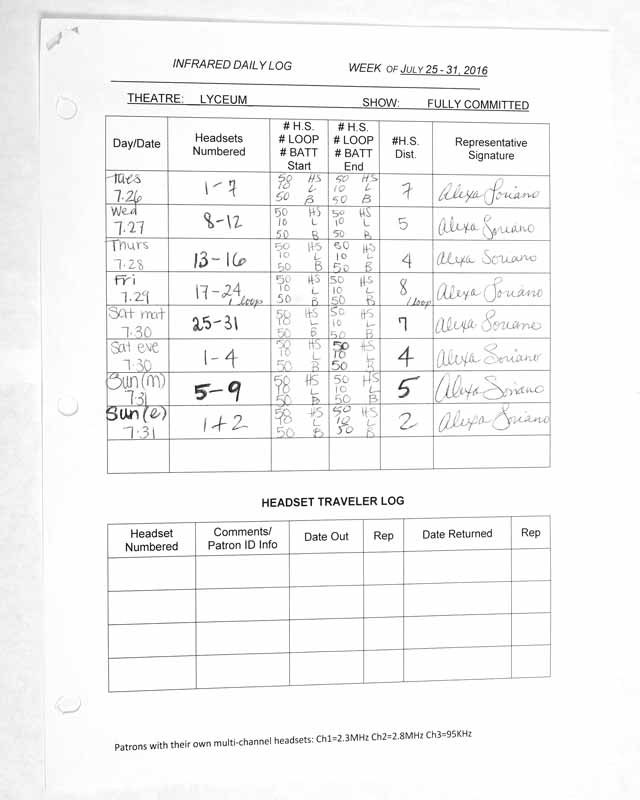 INFRARED DAILY LOG WEEK OF JULY 25 - 31, 2016
THEATRE: LYCEUM SHOW: FULLY COMMITTED
Day/Date Headsets Numbered # H.S. # LOOP # BATT Start # H.S. # LOOP # BATT End #H.S. Dist. Representative Signature
Tues 7.26 1-7 50 HS 10 L 50 B 50 HS 10 L 50 B 7 Alexa Soriano
Wed 7.27 8-12 50 HS 10 L 50 B 50 HS 10 L 50 B 5 Alexa Soriano
Thurs 7.28 13-16 50 HS 10 L 50 B 50 HS 10 L 50 B 4 Alexa Soriano
Fri 7.29 17-24 1 loop 50 HS 10 L 50 B 50 HS 10 L 50 B 8 1 loop Alexa Soriano
Sat mat 7.30 25-31 50 HS 10 L 50 B 50 HS 10 L 50 B 7 Alexa Soriano
Sat eve 7.30 1-4 50 HS 10 L 50 B 50 HS 10 L 50 B 4 Alexa Soriano
Sun (m) 7.31 5-9 50 HS 10 L 50 B 50 HS 10 L 50 B 5 Alexa Soriano
Sun (e) 7.31 1+2 50 HS 10 L 50 B 50 HS 10 L 50 B 2 Alexa Soriano
HEADSET TRAVELER LOG
Headset Numbered Comments/ Patron ID Info Date Out Rep Date Returned Rep
Patrons with their own multi-channel headsets: Ch1=2.3MHz Ch2=2.8MHz Ch3=95KHz